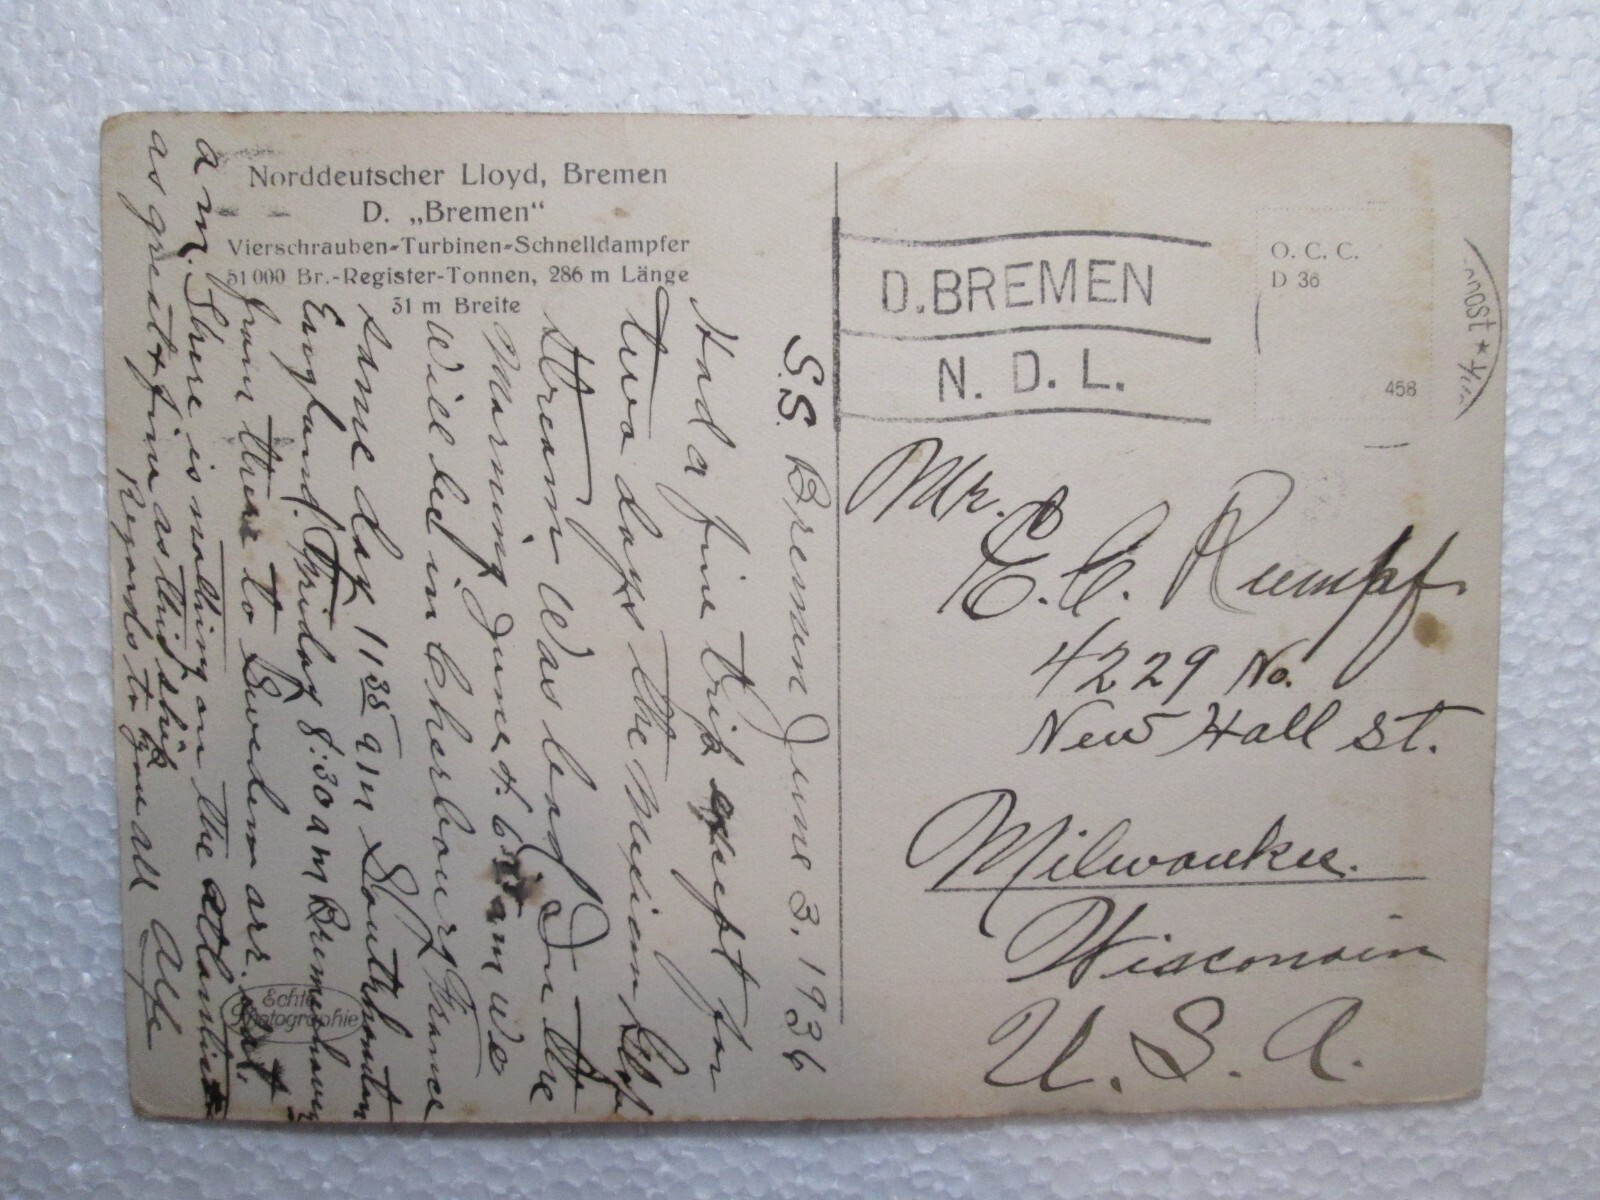 Norddeutscher Lloyd, Bremen
D. „Bremen“
Vierschrauben-Turbinen-Schnelldampfer
51000 Br.-Register-Tonnen, 286 m Länge
31 m Breite
S.S. Bremen June 3, 1936
Had a fine trip except for
two days the Mexican Gulf
stream was bad. In the
Morning June 4. 6:15 am we
will be in Cherbourg France
same day 11 35 am Southhamton
England. Friday 8:30 am Bremerhaven
from there to Sweden arr.
am. There is nothing on the Atlantic
as great & fine as this ship
Regards to you all Alfe
Echte
Photographie
D. BREMEN
N. D. L.
O. C. C.
D 36
458
Mr.
E. C. Rumpf
4229 No.
New Hall St.
Milwaukee.
Wisconsin
U. S. A.